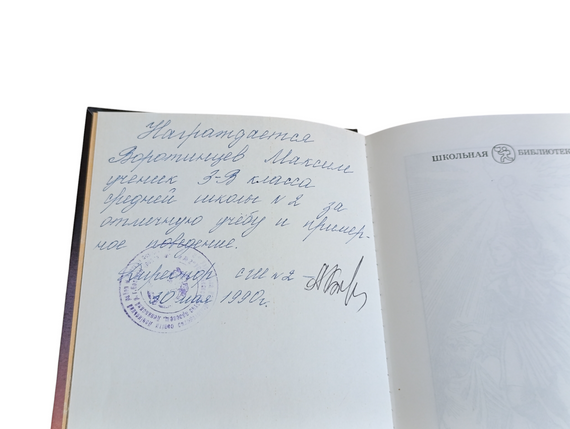 Награждается
Воротинцев Максим
ученик 3-В класса
средней школы №2 за
отличную учебу и пример-
ное поведение.
Директор СШ №2
30 мая 1990г.
ШКОЛЬНАЯ БИБЛИОТЕК